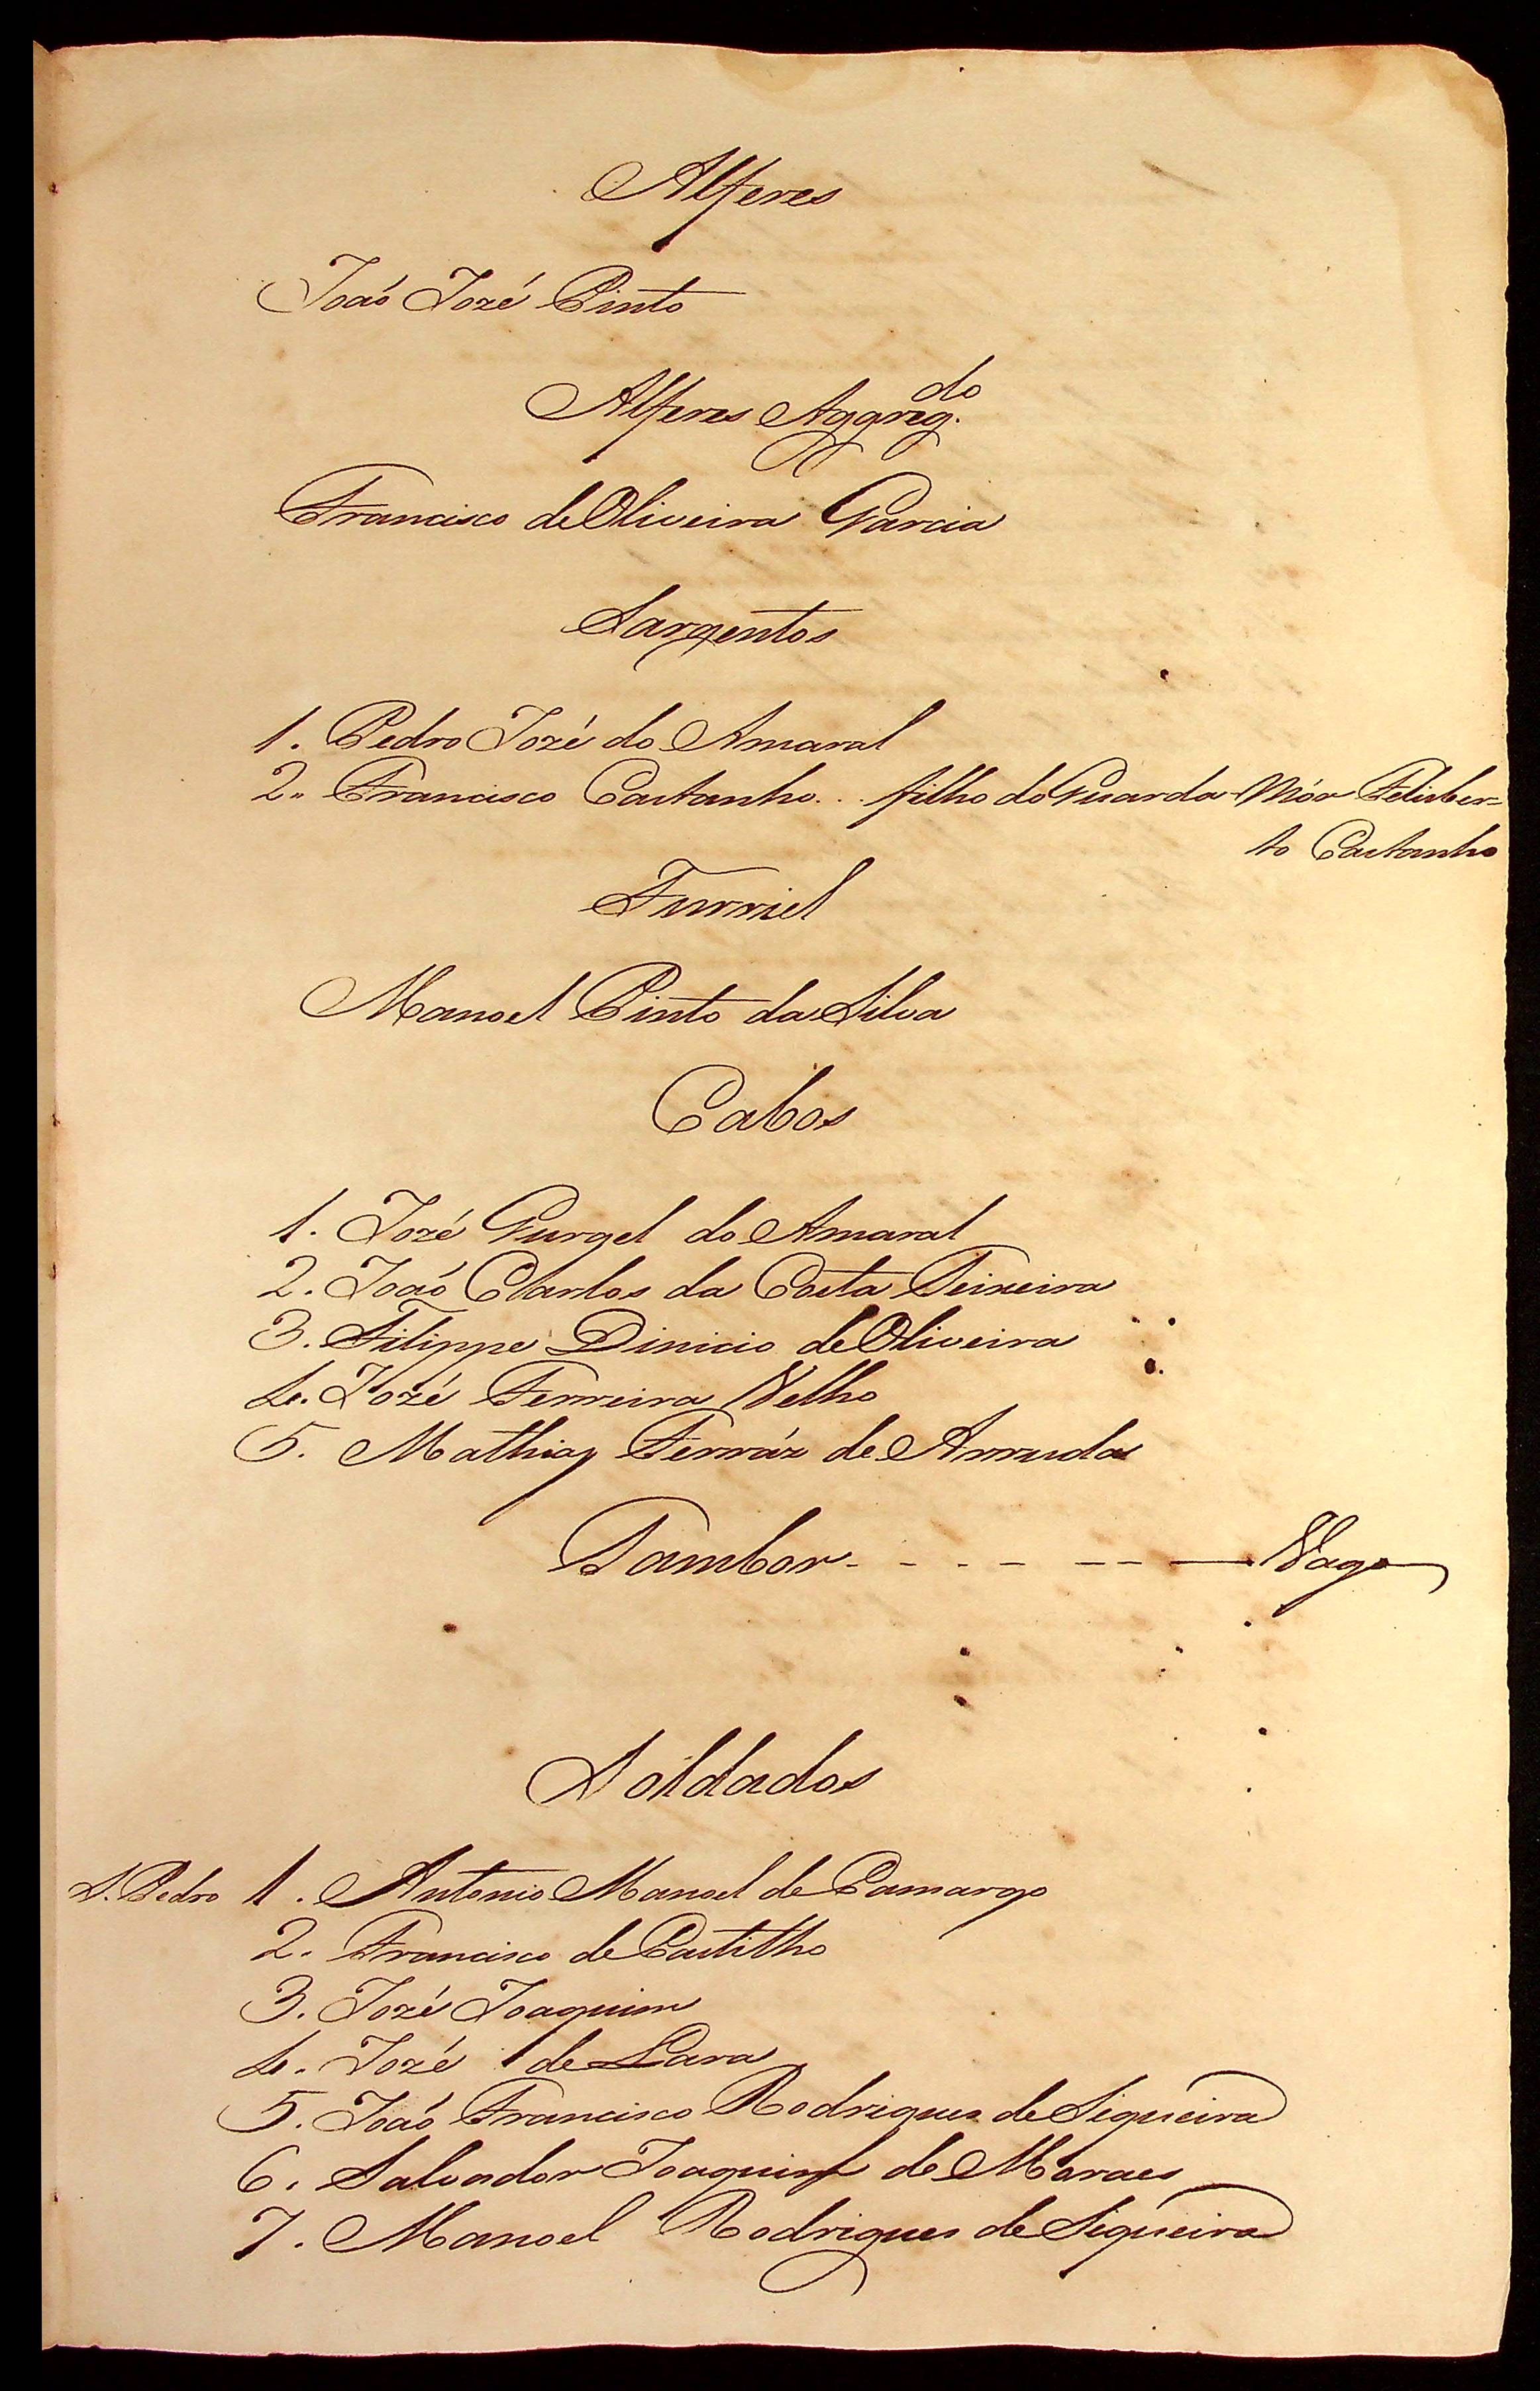 Alferes
Joaõ Jozé Pinto
Alferes Aggreg.do
Francisco de Oliveira Garcia
Sargentos
1. Pedro Jozé do Amaral
2. Francisco Castanho . . filho do Guarda-Mór Felisber=
to Castanho
Furriel
Manoel Pinto da Silva
Cabos
1. Jozé Gurgel do Amaral
2. Joaõ Carlos da Costa Teixeira
3. Filippe Dinicio de Oliveira
4. Jozé Ferreira Velho
5. Mathias Ferráz de Arruda
Tambor - - - - - - - Vago
Soldados
S. Pedro 1. Antonio Manoel de Camargo
2. Francisco de Castilho
3. Jozé Joaquim
4. Jozé de Lara
5. Joaõ Francisco Rodrigues de Siqueira
6. Salvador Joaquim de Moraes
7. Manoel Rodrigues de Siqueira